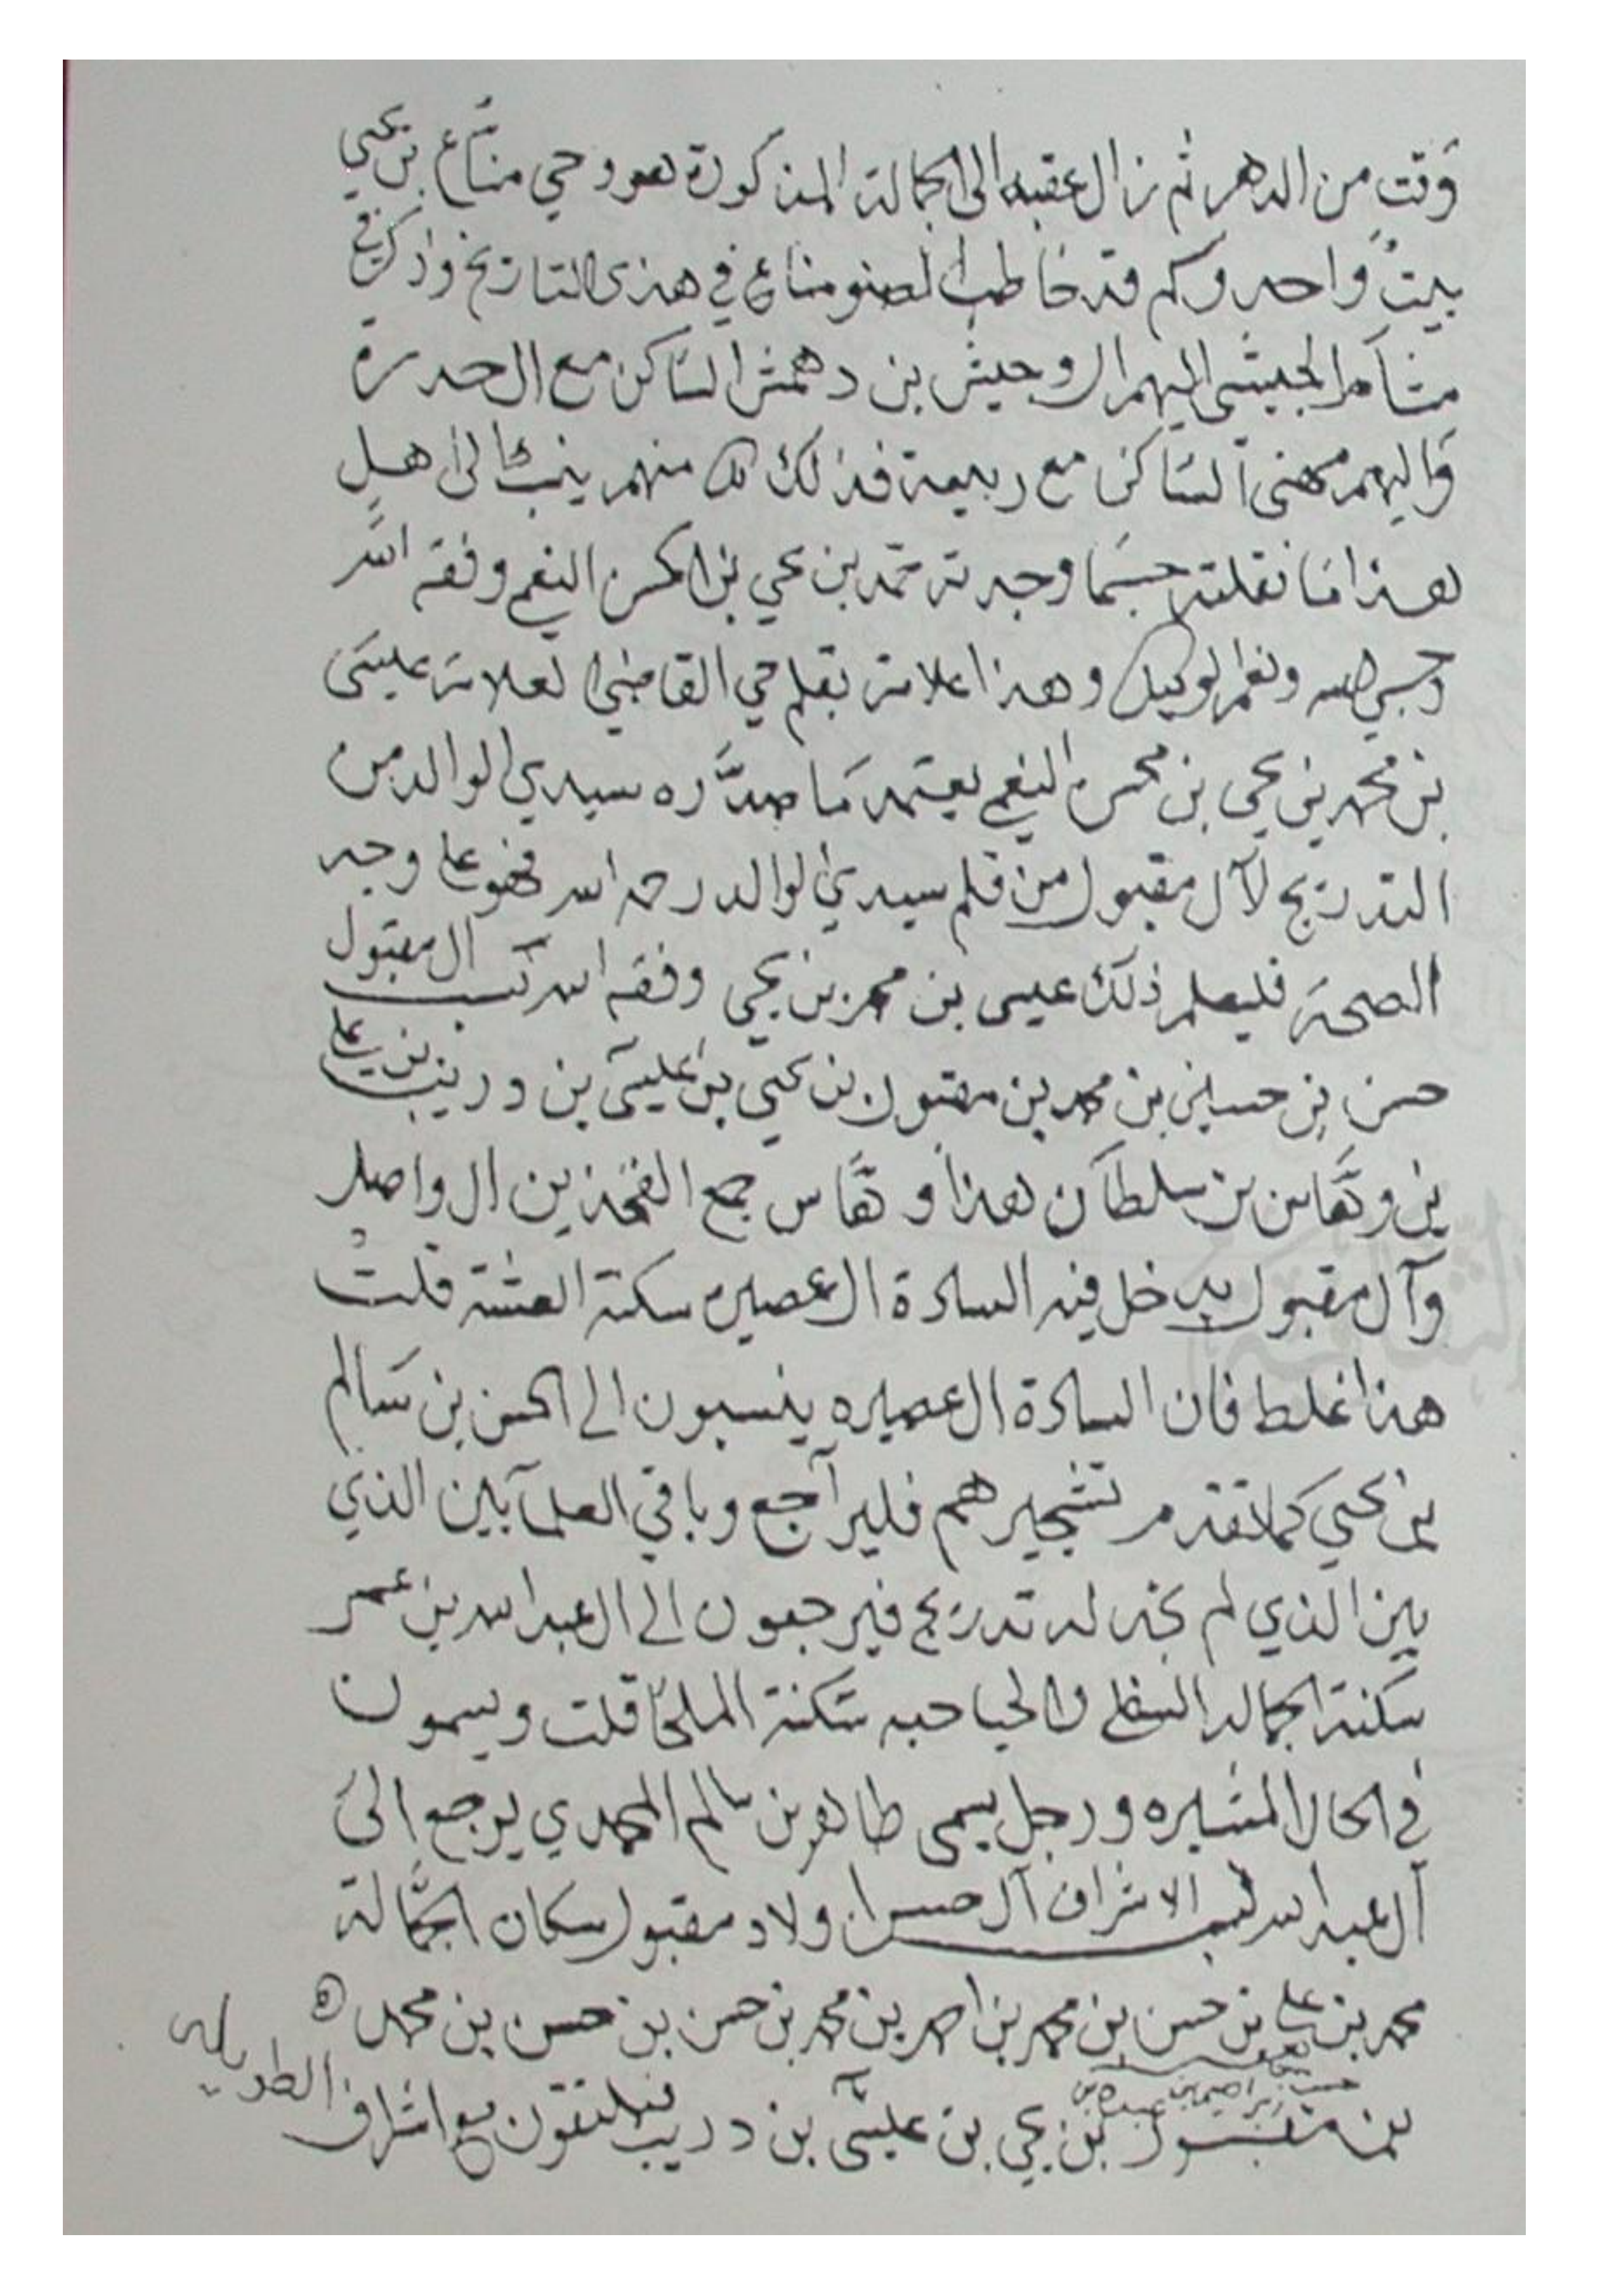 وقت من الدهر ثم نزال عقبه الى الجمالة المذكورة هو وحي مناع بن يحيى
بيت واحد وكم قد خاطب الصنو مناع في هذى التاريخ واذكر في
مشامر الجيشي اليهم ال وحيش بن دهمش الساكن مع ال حدرة
واليهم مهنى الساكن مع ربيعة فذلك منهم ينسب الى اهل
هذا ما نقلته حسبما وجدته محمد بن يحي بن المحسن النعمي وفقه الله
وحسبي الله ونعم الوكيل وهذا علامة بقلم حي القاضي العلامة عيسى
بن محمد بن يحي بن محسن النعمي يعتمد ما صدره سيدي الوالد من
التدريج لآل مقبول من قلم سيدي الوالد رحمه الله فهو على وجه
الصحة فليعلم ذلك عيسى بن محمد بن يحيى وفقه الله نسب ال مقبول
حسن بن حسين بن محمد بن مقبول بن يحيى بن عيسى بن دريب بن علي
بن وهاس بن سلطان هذا وهاس جمع الفخذين ال واصل
وآل مقبول يدخل فيه السادة ال عصيره سكنة العشة قلت
هذا غلط فان السادة ال عصيره ينسبون الى الحسن بن سالم
بن يحيى كما تقدم تشجيرهم فليراجع وباقي العلآبين الذي
بين الذي لم نجد له تدريج فيرجعون الى ال عبد الله بن عمر
سكنة الجماله السفلى والحباحبه سكنة الملحا قلت ويسمون
في الحال المشيره ورجل يسمى طاهر بن سالم المحمدي يرجع الى
آل عبد الله نسب الاشراف آل حسن اولاد مقبول سكان الجمالة
محمد بن علي بن حسن بن محمد بن احمد بن محمد بن حسن بن حسن بن محمد
بن مقبول بن يحي بن عيسى بن دريب فيلتقون مع اشراف